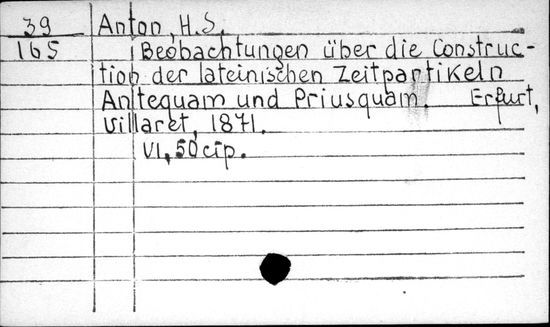 39 Anton, H.S.
165 Beobachtungen über die Construc-
tion der lateinischen Zeitpartikeln
Antequam und Priusquam. Erfurt,
Villaret, 1871.
VI, 50 cip.